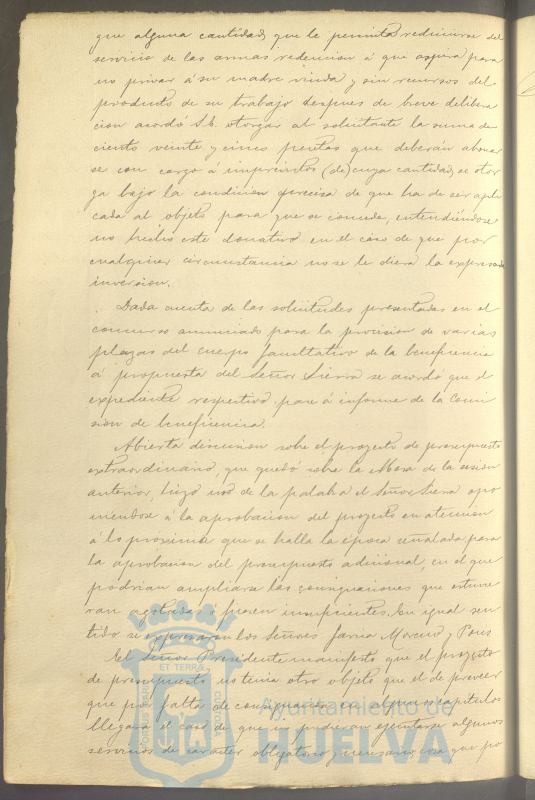 que alguna cantidad que le permita redimirse del
servicio de las armas redencion á que aspira para
no privar á su madre viuda y sin recursos del
producto de su trabajo despues de breve delibera
cion acordó S.E. otorgar al solicitante la suma de
ciento veinte y cinco pesetas que deberán abonar
se con cargo á imprevistos (de) cuya cantidad se otor
ga bajo la condicion precisa de que ha de ser apli
cada al objeto para que se concede, entendiéndose
no hecho este donativo en el caso de que por
cualquier circunstancia no se le diera la expresada
inversion.
Dada cuenta de las solicitudes presentadas en el
concurso anunciado para la provision de varias
plazas del cuerpo facultativo de la beneficencia
á propuesta del Señor Sierra se acordó que el
expediente respectivo pase á informe de la Comi
sion de beneficencia.
Abierta discusion sobre el proyecto de presupuesto
extraordinario, que quedó sobre la Mesa de la sesion
anterior, hizo uso de la palabra el Señor Sierra opo
niendose á la aprobacion del proyecto en atencion
á lo próxima que se halla la época señalada para
la aprobacion del presupuesto adicional, en el que
podrian ampliarse las consignaciones que estuvie
ran agotadas o fuesen insuficientes. En igual sen
tido se expresaron los Señores Garcia Moreno y Pons
El Señor Presidente manifestó que el proyecto
de presupuesto no tenia otro objeto que el de preveer
que por falta de consignacion en algunos capitulos
llegara el caso de que no pudieran ejecutarse algunos
servicios de caracter obligatorio y necesario, cosa que po
PORTUS MARIS
ET TERRÆ
CUSTODIA
Ayuntamiento de
HUELVA